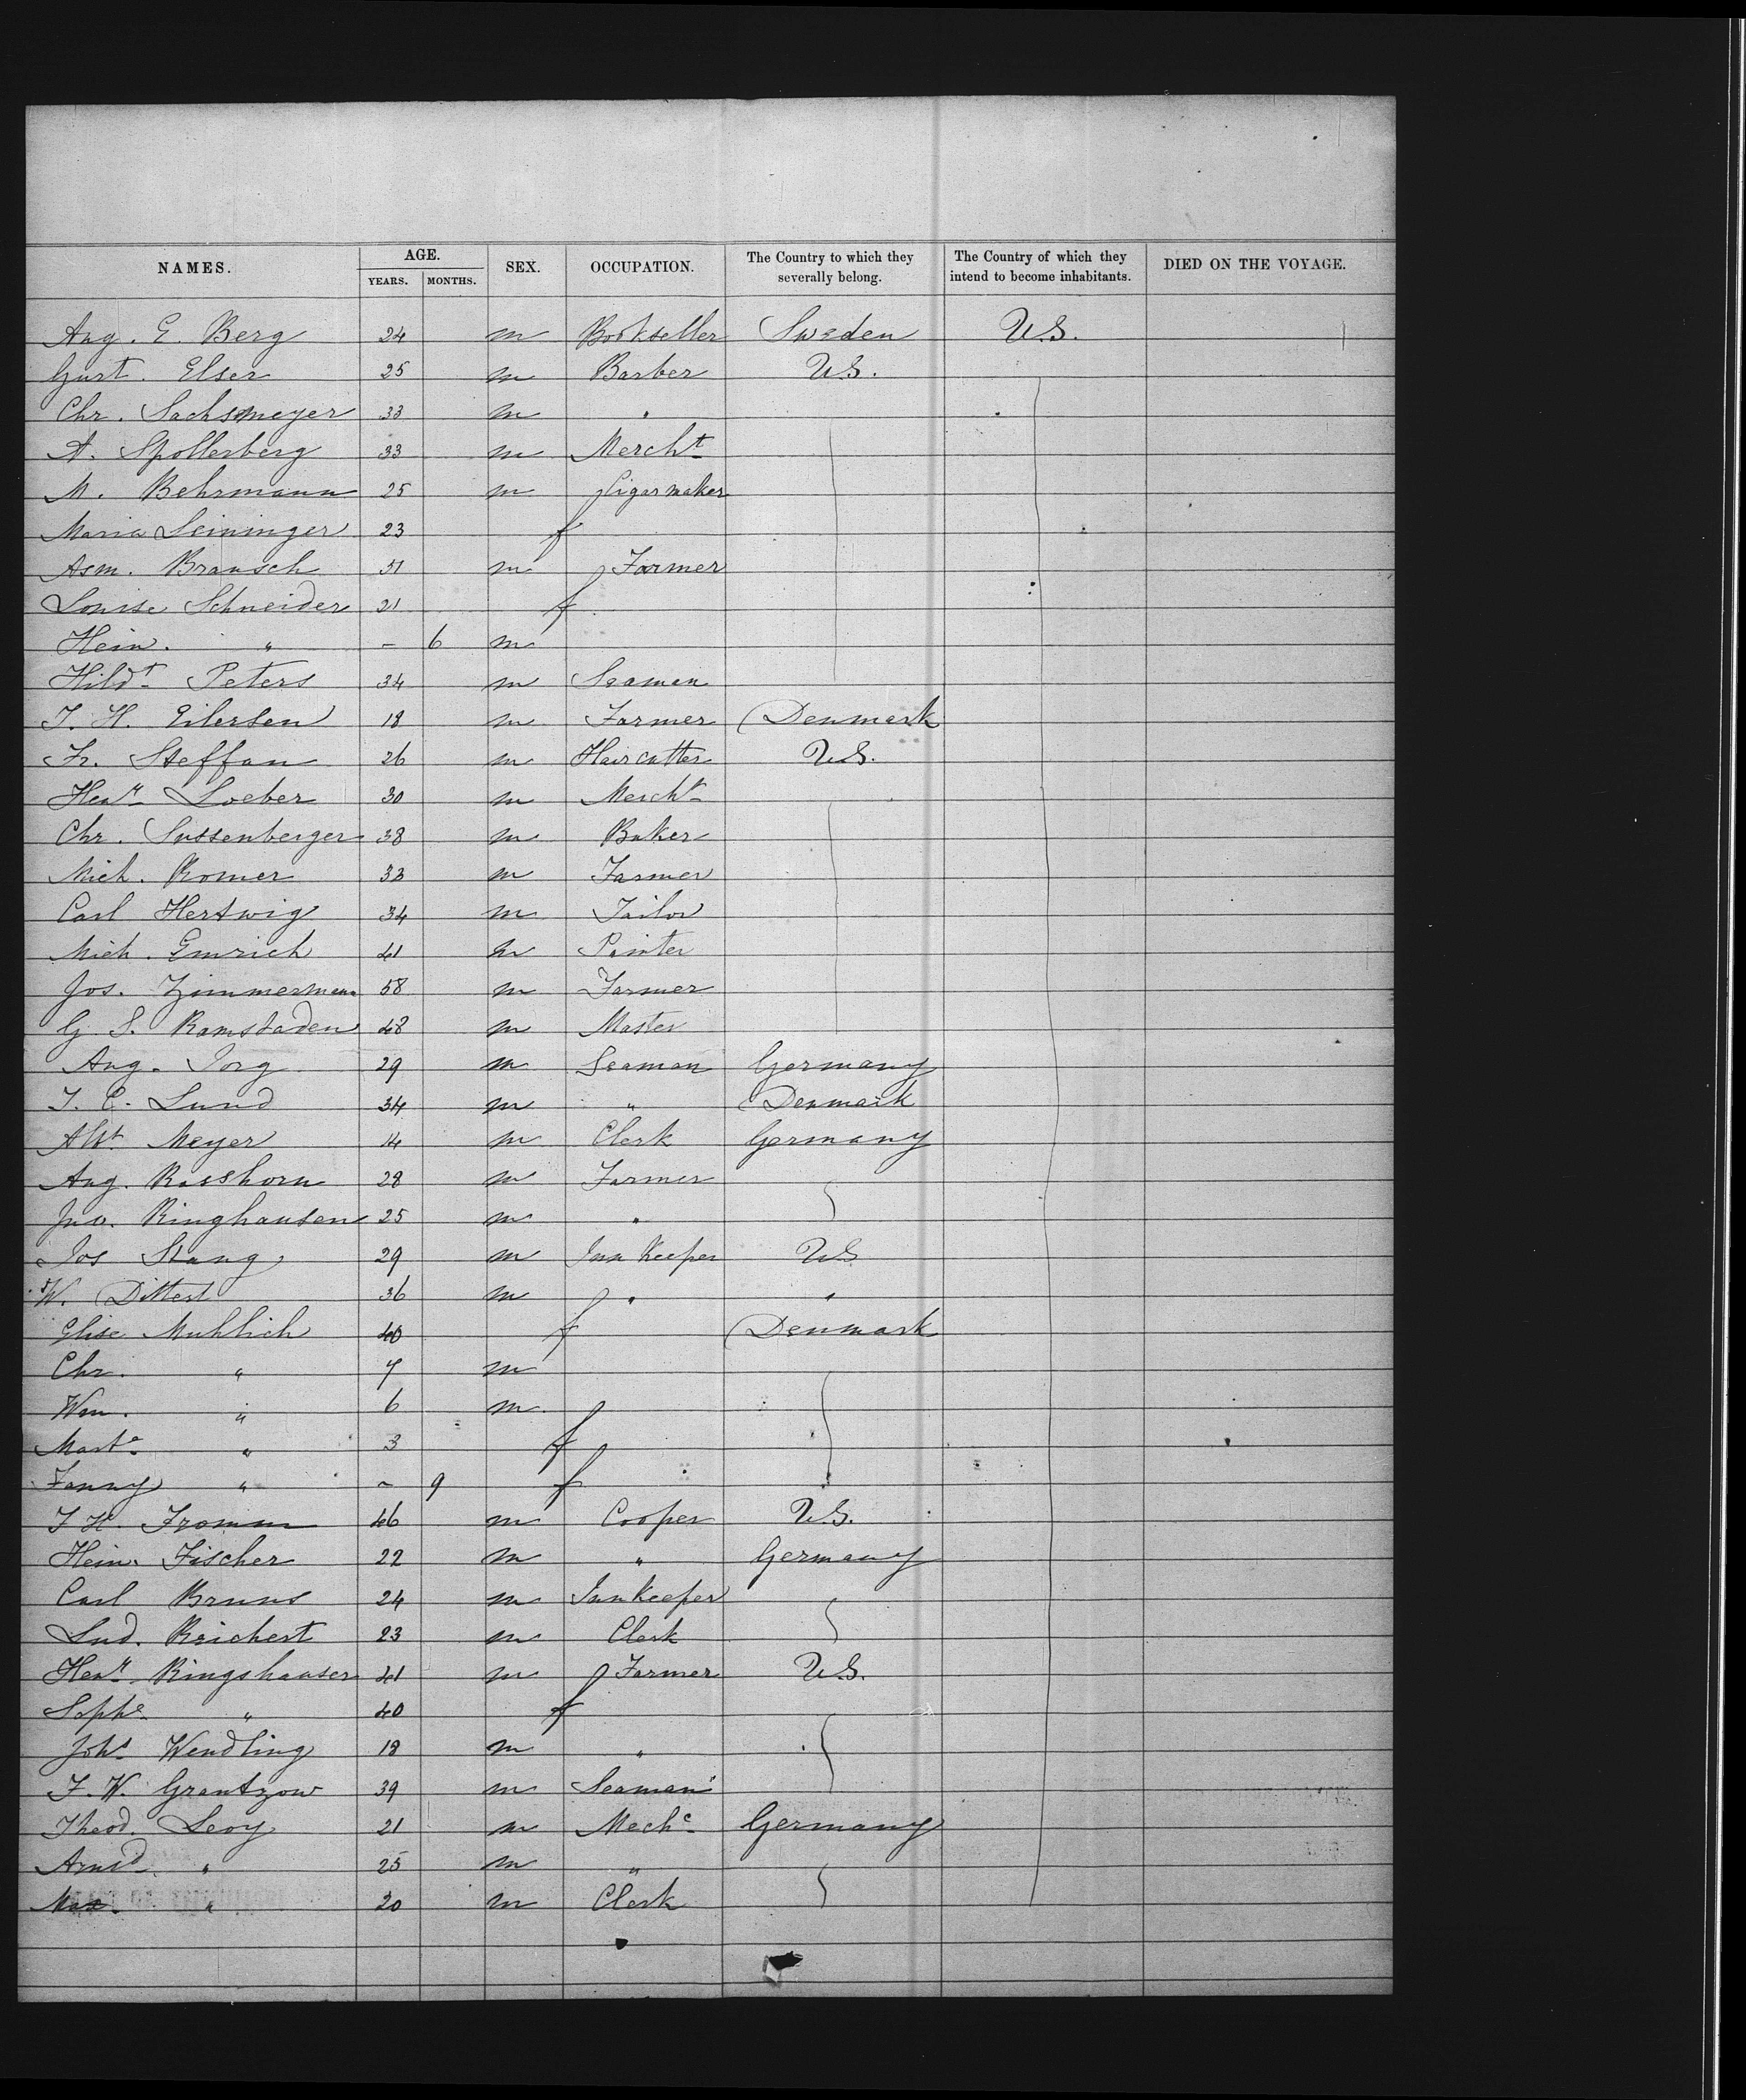 NAMES. AGE. YEARS. MONTHS. SEX. OCCUPATION. The Country to which they severally belong. The Country of which they intend to become inhabitants. DIED ON THE VOYAGE.
Aug. E. Berg 24 m Bookseller Sweden U.S.
Gust. Elser 25 m Barber U.S.
Chr. Sachsmeyer 33 m "
A. Spollerberg 33 m Mercht
M. Behrmann 25 m Cigarmaker
Maria Leininger 23 f
Asm. Brausch 51 m Farmer
Louise Schneider 21 f
Hein. " - 6 m
Hildt Peters 34 m Seaman
J. H. Eilersen 18 m Farmer Denmark
Fr. Steffan 26 m Haircutter U.S.
Heny Loeber 30 m Mercht
Chr. Sussenberger 38 m Baker
Mich. Romer 33 m Farmer
Carl Hertwig 34 m Tailor
Mich. Emrich 41 m Painter
Jos. Zimmermann 58 m Farmer
G S. Ramstaden 48 m Master
Aug. Jorg 29 m Seaman Germany
J. C. Lund 34 m " Denmark
Albt Meyer 14 m Clerk Germany
Aug. Rasshorn 28 m Farmer
Jno. Ringhausen 25 m "
Jos Stang 29 m Inn Keeper US
W. Dittert 36 m " "
Elise Muhlich 40 f Denmark
Chr. " 7 m
Wm. " 6 m
Marte " 3 f
Fanny " - 9 f
J H. Fromm 46 m Cooper U.S.
Hein. Fischer 22 m " Germany
Carl Bruns 24 m Innkeeper
Lud. Reichert 23 m Clerk
Heny Ringshauser 41 m Farmer U.S.
Sophe " 40 f
Johs Wendling 18 m "
F. W. Grantzow 39 m Seaman
Theod. Levy 21 m Mechc Germany
Arnsd " 25 m "
Max " 20 m Clerk